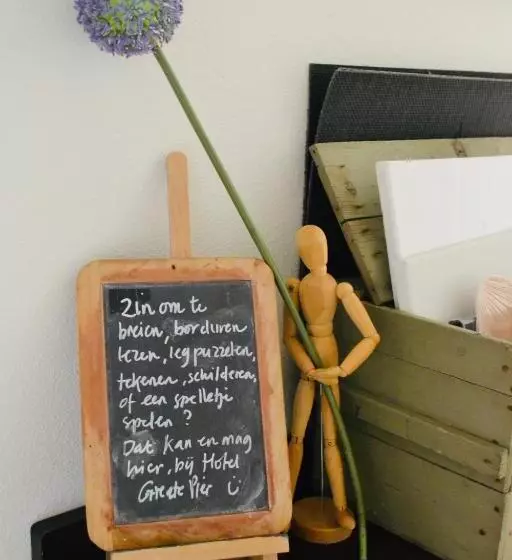 Zin om te
breien, borduren
lezen, legpuzzelen,
tekenen, schilderen,
of een spelletje
spelen?
Dat kan en mag
hier, bij Hotel
Greate Pier ü